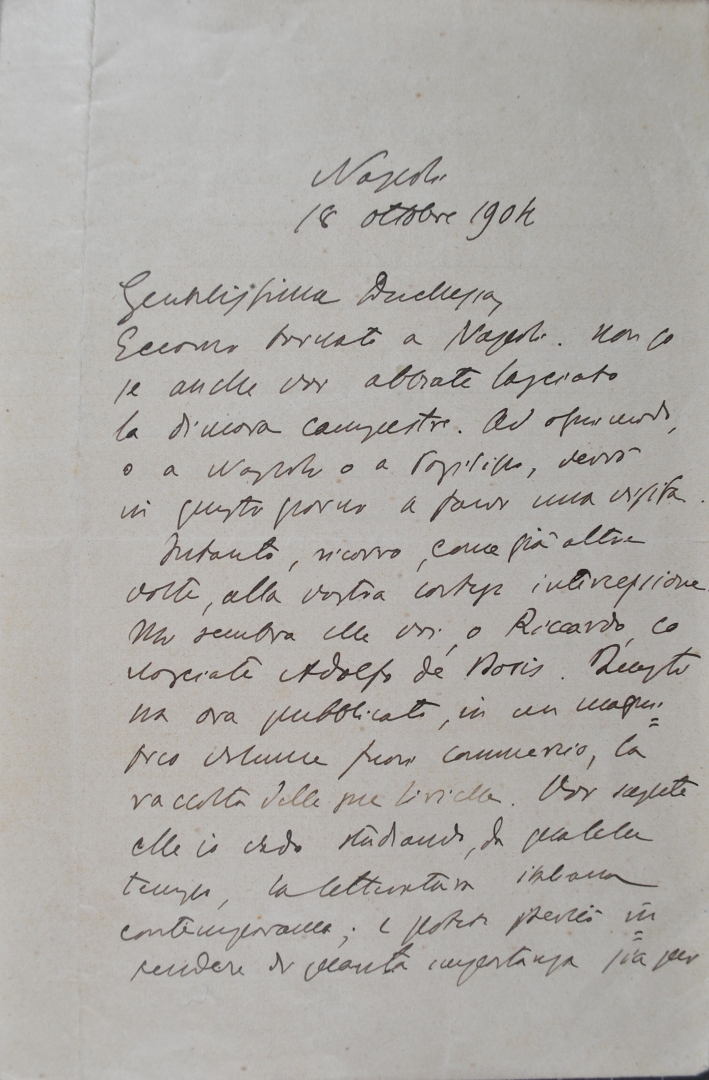 Napoli
18 ottobre 1904
Gentilissima Duchessa,
Eccomi tornato a Napoli. Non so
se anche voi abbiate lasciato
la dimora campestre. Ad ogni modo,
o a Napoli o a Posilipo, verrò
in questi giorni a farvi una visita.
Intanto, ricorro, come già altre
volte, alla vostra cortese intercessione.
Mi sembra che voi, o Riccardo, co
nosciate Adolfo de Bosis. Questi
ha ora pubblicato, in un magni=
fico volume fuori commercio, la
raccolta delle sue liriche. Voi sapete
che io vado studiando, da qualche
tempo, la letteratura italiana
contemporanea; e potete perciò in=
tendere di quanta importanza sia per